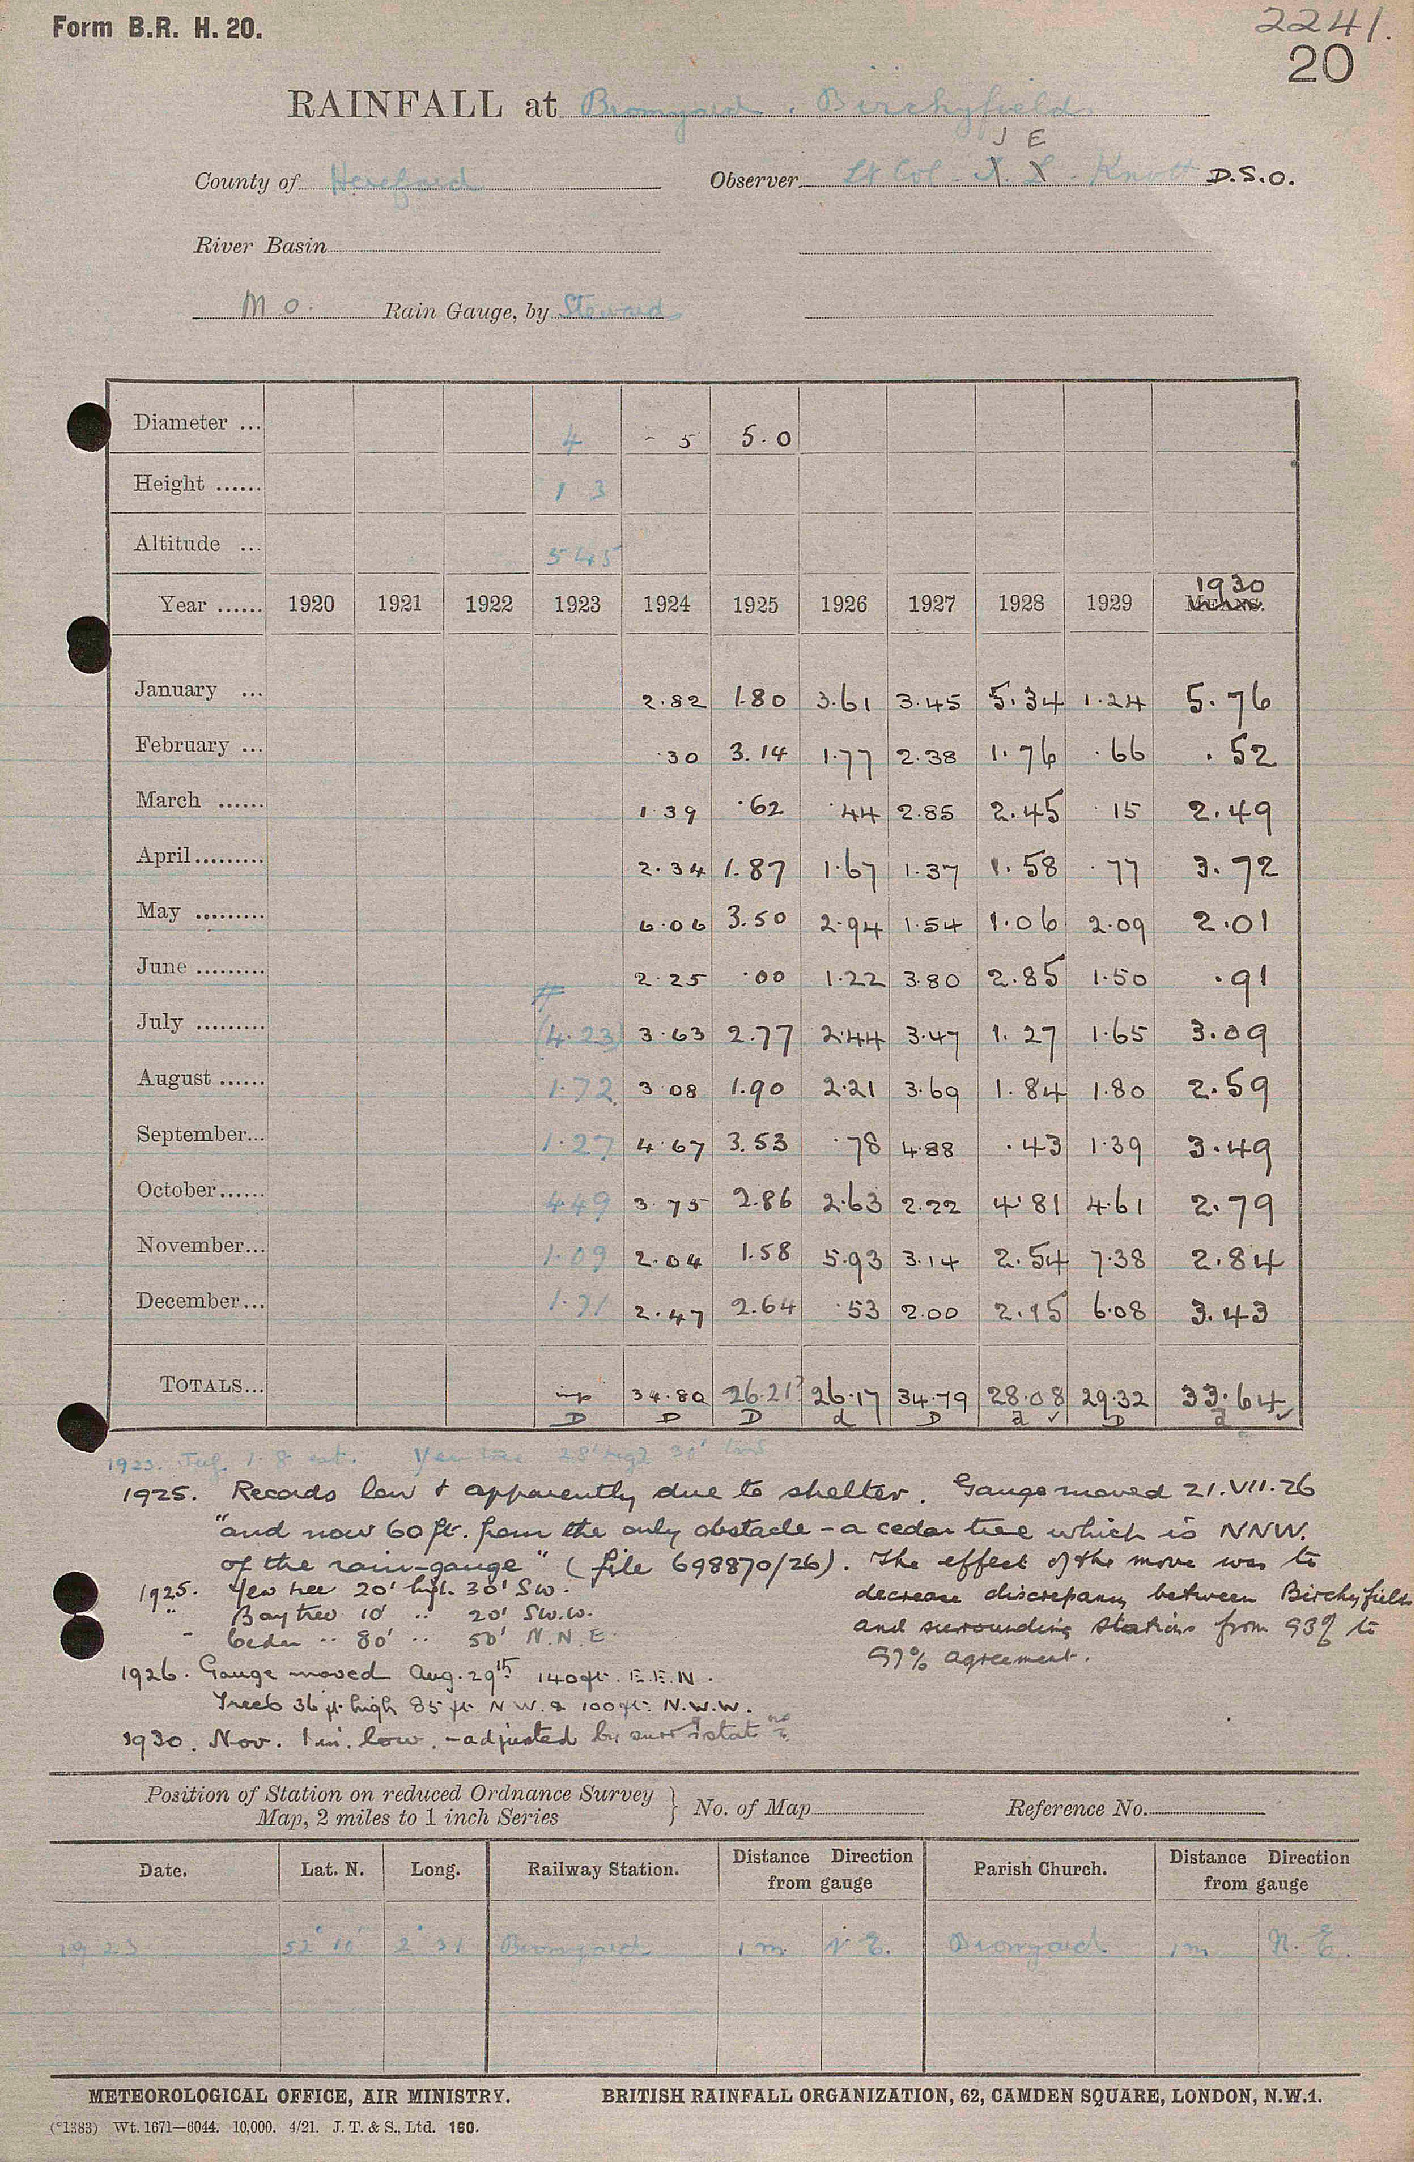 Form B.R. H. 20.
2241.
20
RAINFALL at Bromyard. Birchyfield
J E
County of Hereford Observer Lt Col. Knott D.S.O.
River Basin
M O. Rain Gauge, by Steward
Diameter ... 4 5 5.0
Height ...... 1 3
Altitude ... 545
1930
Year ...... 1920 1921 1922 1923 1924 1925 1926 1927 1928 1929 MEANS.
January ... 2.82 1.80 3.61 3.45 5.34 1.24 5.76
February ... .30 3.14 1.77 2.38 1.76 .66 .52
March ...... 1.39 .62 .44 2.85 2.45 .15 2.49
April......... 2.34 1.87 1.67 1.37 1.58 .77 3.72
May ......... 6.06 3.50 2.94 1.54 1.06 2.09 2.01
June ......... 2.25 .00 1.22 3.80 2.85 1.50 .91
#
July ......... (4.23) 3.63 2.77 2.44 3.47 1.27 1.65 3.09
August ...... 1.72 3.08 1.90 2.21 3.69 1.84 1.80 2.59
September... 1.27 4.67 3.53 .78 4.88 .43 1.39 3.49
October...... 4.49 3.75 2.86 2.63 2.22 4.81 4.61 2.79
November... 1.09 2.04 1.58 5.93 3.14 2.54 7.38 2.84
December... 1.71 2.47 2.64 .53 2.00 2.15 6.08 3.43
TOTALS... 34.80 26.21 26.17 34.79 28.08 29.32 33.64
D D D d D a ✓ D a ✓
1923. July 1-8 est. Yew tree 28' hgt 30'
1925. Records low & apparently due to shelter. Gauge moved 21.VII.26
"and now 60 ft. from the only obstacle - a cedar tree which is NNW.
of the rain-gauge" (file 698870/26). The effect of the move was to
decrease discrepancy between Birchyfield
and surrounding stations from 93% to
97% agreement.
1925. Yew tree 20' hgt. 30' SW.
" Bay tree 10' .. 20' SW.W.
" Cedar .. 80' .. 50' N.N.E.
1926. Gauge moved Aug. 29th 140 ft. E.E.N.
Trees 36 ft. high 85 ft. N W. & 100 ft. N.W.W.
1930. Nov. 1 in. low. - adjusted by surrd statns
Position of Station on reduced Ordnance Survey
Map, 2 miles to 1 inch Series } No. of Map Reference No.
Date. Lat. N. Long. Railway Station. Distance Direction from gauge Parish Church. Distance Direction from gauge
1923 52° 10' 2° 31 Bromyard 1 m N E. Bromyard 1 m N. E.
METEOROLOGICAL OFFICE, AIR MINISTRY. BRITISH RAINFALL ORGANIZATION, 62, CAMDEN SQUARE, LONDON, N.W.1.
(*1383) Wt. 1671—6044. 10,000. 4/21. J. T. & S., Ltd. 160.